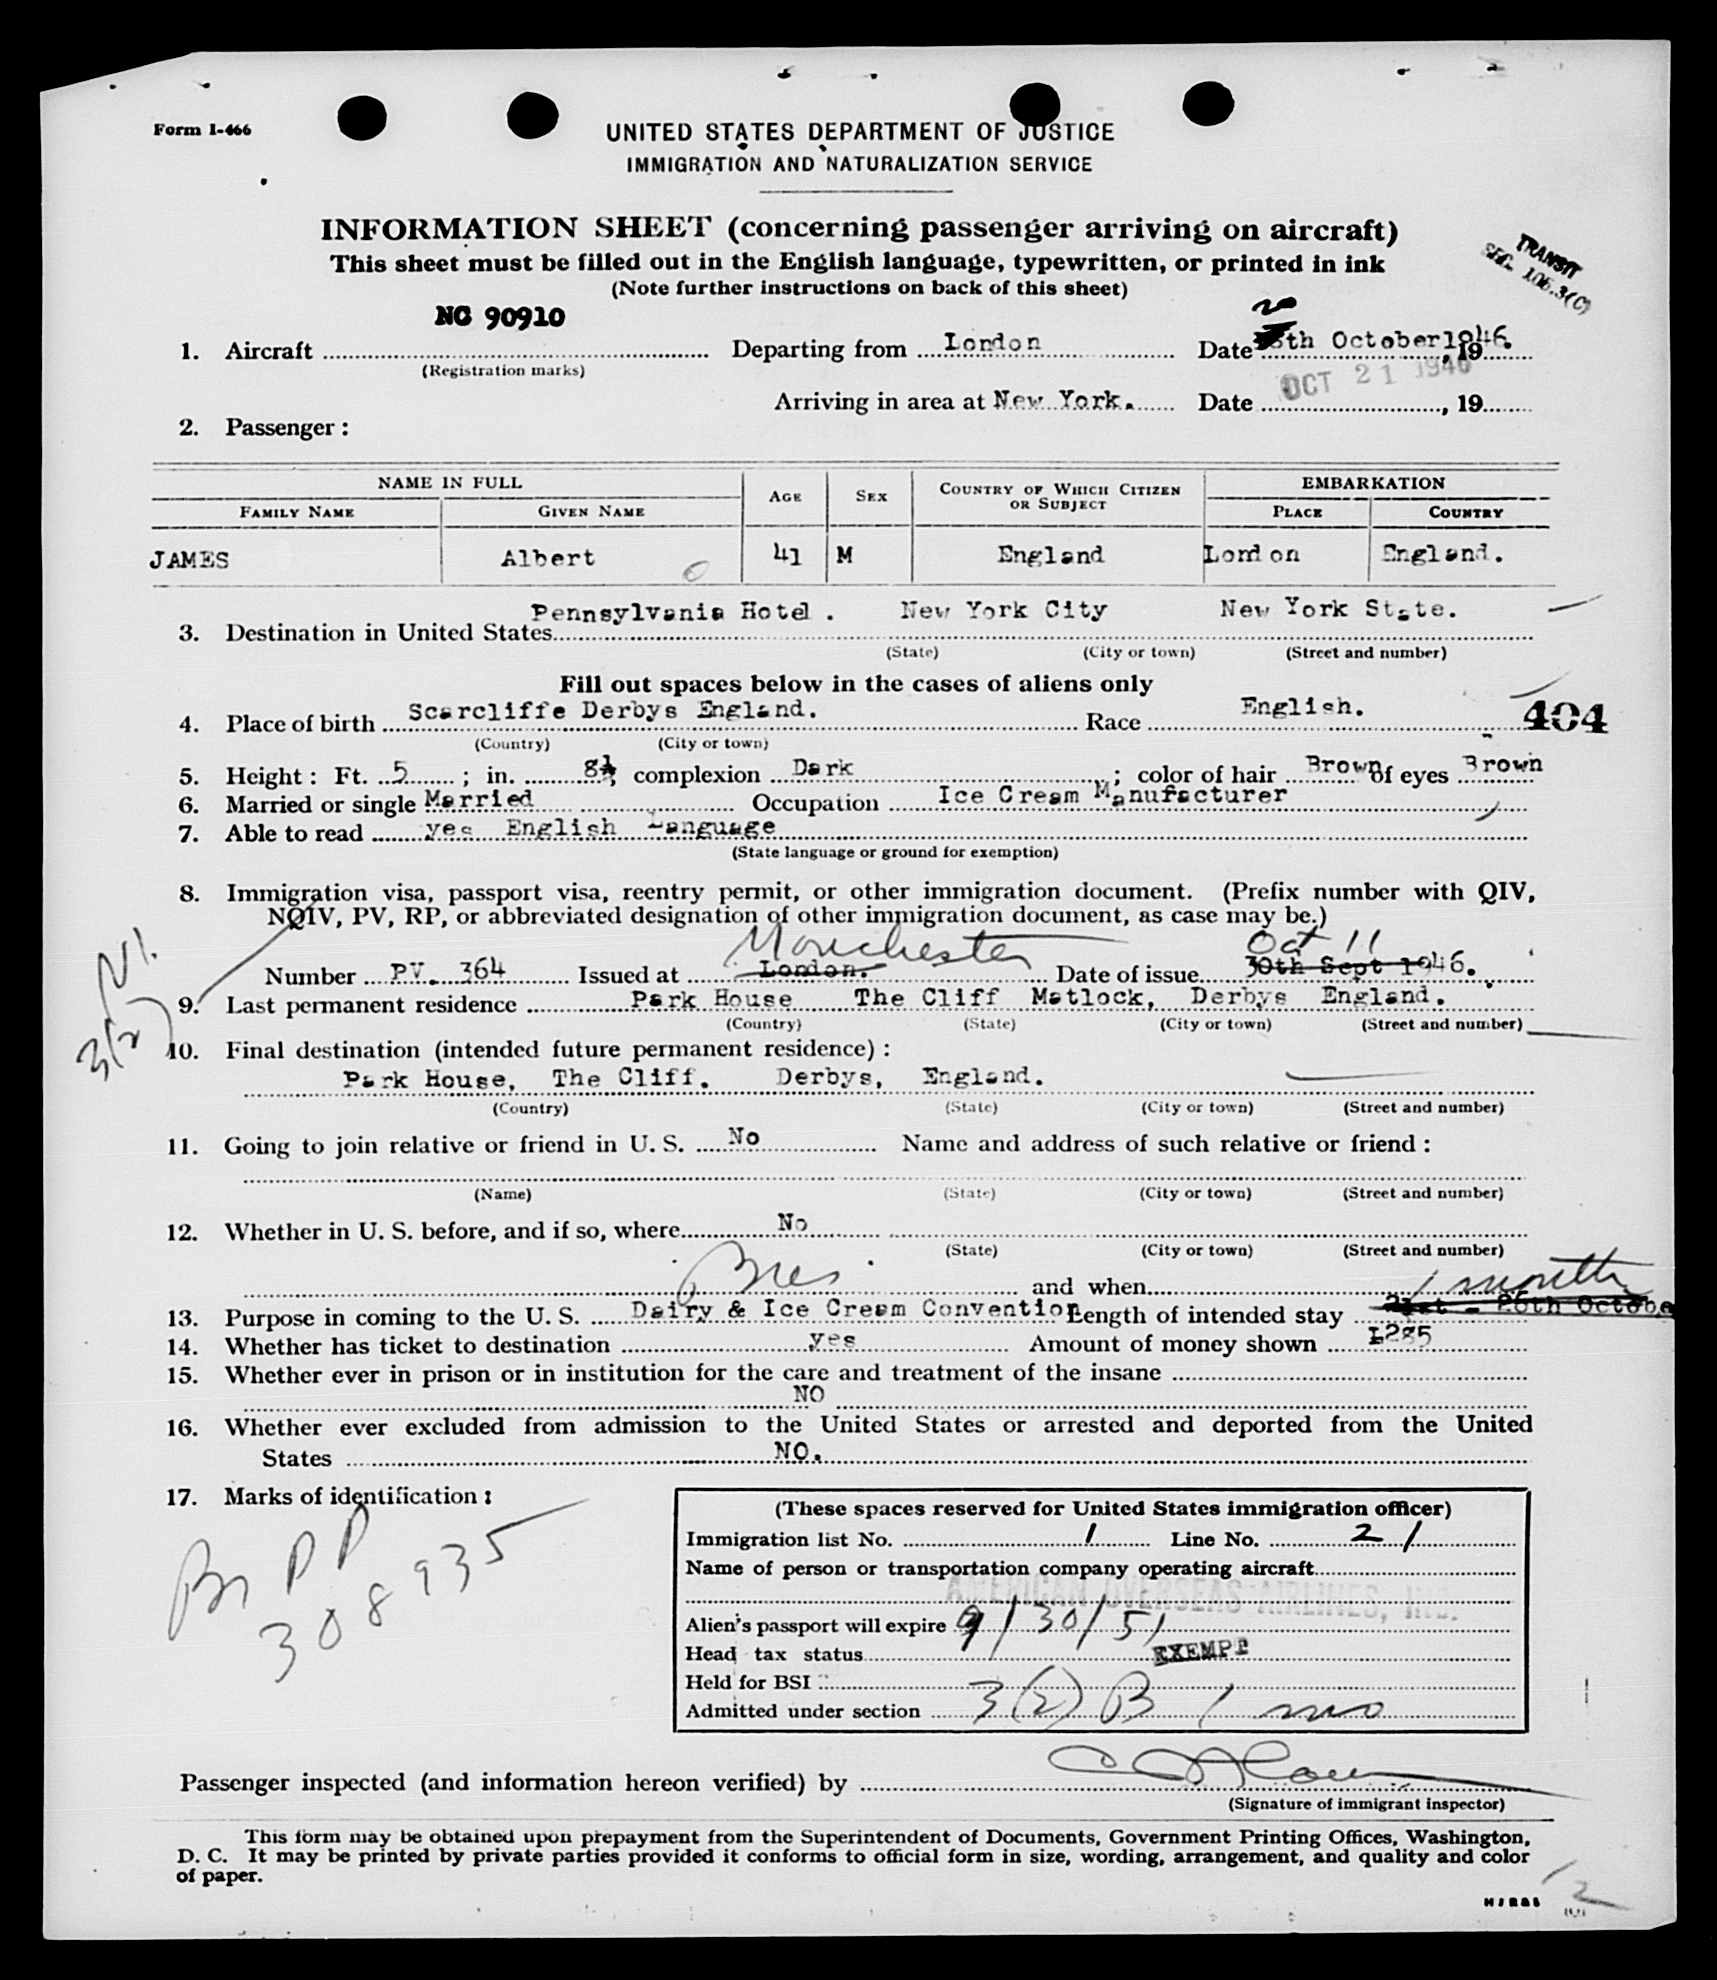 Form I-466
UNITED STATES DEPARTMENT OF JUSTICE
IMMIGRATION AND NATURALIZATION SERVICE
INFORMATION SHEET (concerning passenger arriving on aircraft)
This sheet must be filled out in the English language, typewritten, or printed in ink
(Note further instructions on back of this sheet)
TRANSIT
SEC. 106.3(C)
NC 90910
20
1. Aircraft Departing from London Date th October 1946. , 19
(Registration marks)
OCT 21 1946
Arriving in area at New York. Date , 19
2. Passenger:
NAME IN FULL AGE SEX COUNTRY OF WHICH CITIZEN OR SUBJECT EMBARKATION
FAMILY NAME GIVEN NAME PLACE COUNTRY
JAMES Albert 41 M England London England.
Pennsylvania Hotel. New York City New York State.
3. Destination in United States
(State) (City or town) (Street and number)
Fill out spaces below in the cases of aliens only
4. Place of birth Scarcliffe Derbys England. Race English. 404
(Country) (City or town)
5. Height: Ft. 5; in. 8½; complexion Dark; color of hair Brown of eyes Brown
6. Married or single Married Occupation Ice Cream Manufacturer
7. Able to read yes English Language
(State language or ground for exemption)
8. Immigration visa, passport visa, reentry permit, or other immigration document. (Prefix number with QIV,
NQIV, PV, RP, or abbreviated designation of other immigration document, as case may be.)
Manchester Oct 11
Number PV. 364 Issued at London. Date of issue 30th Sept 1946.
9. Last permanent residence Park House The Cliff Matlock, Derbys England.
(Country) (State) (City or town) (Street and number)
3(2) VI.
10. Final destination (intended future permanent residence):
Park House, The Cliff. Derbys, England.
(Country) (State) (City or town) (Street and number)
11. Going to join relative or friend in U. S. No Name and address of such relative or friend:
(Name) (State) (City or town) (Street and number)
12. Whether in U. S. before, and if so, where No
(State) (City or town) (Street and number)
Bus and when 1 month
13. Purpose in coming to the U. S. Dairy & Ice Cream Convention Length of intended stay 21st - 26th October
14. Whether has ticket to destination yes Amount of money shown £285
15. Whether ever in prison or in institution for the care and treatment of the insane
NO
16. Whether ever excluded from admission to the United States or arrested and deported from the United
States NO.
17. Marks of identification:
Br PP
308935
(These spaces reserved for United States immigration officer)
Immigration list No. 1 Line No. 21
Name of person or transportation company operating aircraft
AMERICAN OVERSEAS AIRLINES, INC.
Alien's passport will expire 9/30/51
Head tax status EXEMPT
Held for BSI
Admitted under section 3(2) B 1 mo
Passenger inspected (and information hereon verified) by
(Signature of immigrant inspector)
This form may be obtained upon prepayment from the Superintendent of Documents, Government Printing Offices, Washington,
D. C. It may be printed by private parties provided it conforms to official form in size, wording, arrangement, and quality and color
of paper.
12